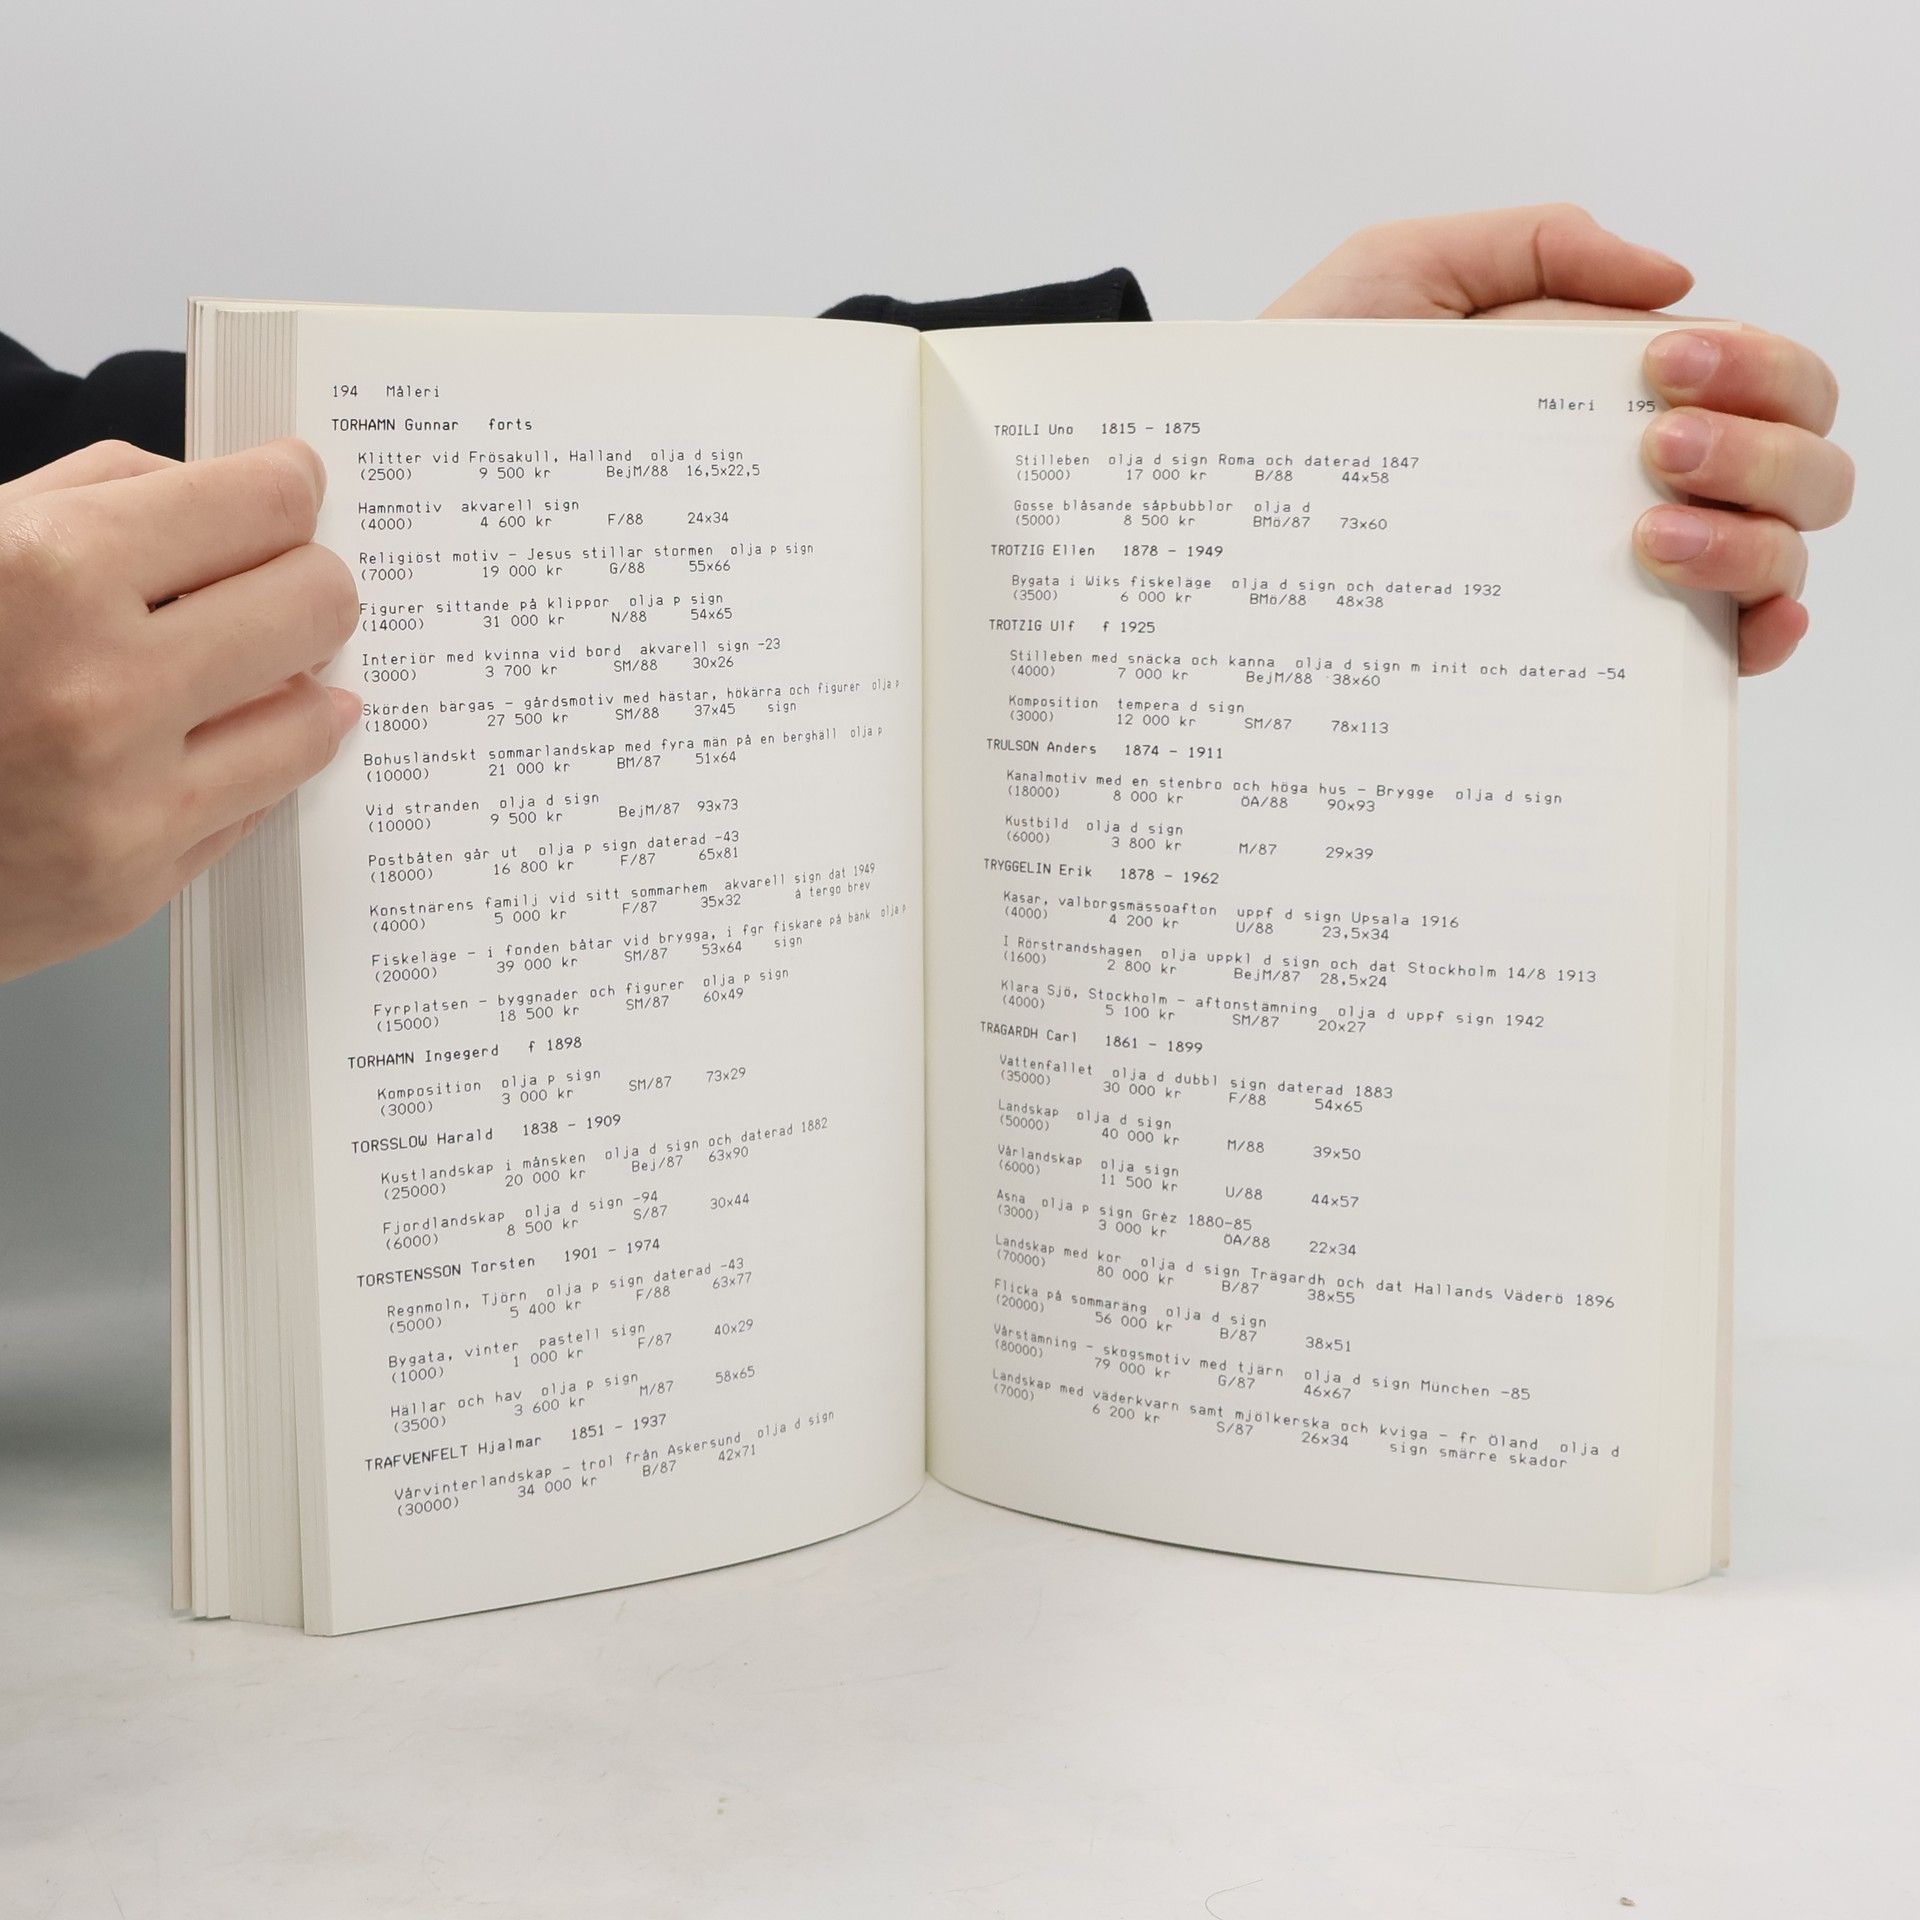 194 Måleri
TORHAMN Gunnar forts
Klitter vid Frösakull, Halland olja d sign
(2500) 9 500 kr BejM/88 16,5x22,5
Hamnmotiv akvarell sign
(4000) 4 600 kr F/88 24x34
Religiöst motiv - Jesus stillar stormen olja p sign
(7000) 19 000 kr G/88 55x66
Figurer sittande på klippor olja p sign
(14000) 31 000 kr N/88 54x65
Interiör med kvinna vid bord akvarell sign -23
(3000) 3 700 kr SM/88 30x26
Skörden bärgas - gårdsmotiv med hästar, hökärra och figurer olja p
(18000) 27 500 kr SM/88 37x45 sign
Bohusländskt sommarlandskap med fyra män på en berghäll olja p
(10000) 21 000 kr BM/87 51x64
Vid stranden olja d sign
(10000) 9 500 kr BejM/87 93x73
Postbåten går ut olja p sign daterad -43
(18000) 16 800 kr F/87 65x81
Konstnärens familj vid sitt sommarhem akvarell sign dat 1949
(4000) 5 000 kr F/87 35x32 å tergo brev
Fiskeläge - i fonden båtar vid brygga, i fgr fiskare på bänk olja p
(20000) 39 000 kr SM/87 53x64 sign
Fyrplatsen - byggnader och figurer olja p sign
(15000) 18 500 kr SM/87 60x49
TORHAMN Ingegerd f 1898
Komposition olja p sign
(3000) 3 000 kr SM/87 73x29
TORSSLOW Harald 1838 - 1909
Kustlandskap i månsken olja d sign och daterad 1882
(25000) 20 000 kr Bej/87 63x90
Fjordlandskap olja d sign -94
(6000) 8 500 kr S/87 30x44
TORSTENSSON Torsten 1901 - 1974
Regnmoln, Tjörn olja p sign daterad -43
(5000) 5 400 kr F/88 63x77
Bygata, vinter pastell sign
(1000) 1 000 kr F/87 40x29
Hällar och hav olja p sign
(3500) 3 600 kr M/87 58x65
TRAFVENFELT Hjalmar 1851 - 1937
Vårvinterlandskap - trol från Askersund olja d sign
(30000) 34 000 kr B/87 42x71
Måleri 195
TROILI Uno 1815 - 1875
Stilleben olja d sign Roma och daterad 1847
(15000) 17 000 kr B/88 44x58
Gosse blåsande såpbubblor olja d
(5000) 8 500 kr BMö/87 73x60
TROTZIG Ellen 1878 - 1949
Bygata i Wiks fiskeläge olja d sign och daterad 1932
(3500) 6 000 kr BMö/88 48x38
TROTZIG Ulf f 1925
Stilleben med snäcka och kanna olja d sign m init och daterad -54
(4000) 7 000 kr BejM/88 38x60
Komposition tempera d sign
(3000) 12 000 kr SM/87 78x113
TRULSON Anders 1874 - 1911
Kanalmotiv med en stenbro och höga hus - Brygge olja d sign
(18000) 8 000 kr ÖA/88 90x93
Kustbild olja d sign
(6000) 3 800 kr M/87 29x39
TRYGGELIN Erik 1878 - 1962
Kasar, valborgsmässoafton uppf d sign Upsala 1916
(4000) 4 200 kr U/88 23,5x34
I Rörstrandshagen olja uppkl d sign och dat Stockholm 14/8 1913
(1600) 2 800 kr BejM/87 28,5x24
Klara Sjö, Stockholm - aftonstämning olja d uppf sign 1942
(4000) 5 100 kr SM/87 20x27
TRÄGÅRDH Carl 1861 - 1899
Vattenfallet olja d dubbl sign daterad 1883
(35000) 30 000 kr F/88 54x65
Landskap olja d sign
(50000) 40 000 kr M/88 39x50
Vårlandskap olja sign
(6000) 11 500 kr U/88 44x57
Åsna olja p sign Grèz 1880-85
(3000) 3 000 kr ÖA/88 22x34
Landskap med kor olja d sign Trägardh och dat Hallands Väderö 1896
(70000) 80 000 kr B/87 38x55
Flicka på sommaräng olja d sign
(20000) 56 000 kr B/87 38x51
Vårstämning - skogsmotiv med tjärn olja d sign München -85
(80000) 79 000 kr G/87 46x67
Landskap med väderkvarn samt mjölkerska och kviga - fr Öland olja d
(7000) 6 200 kr S/87 26x34 sign smärre skador